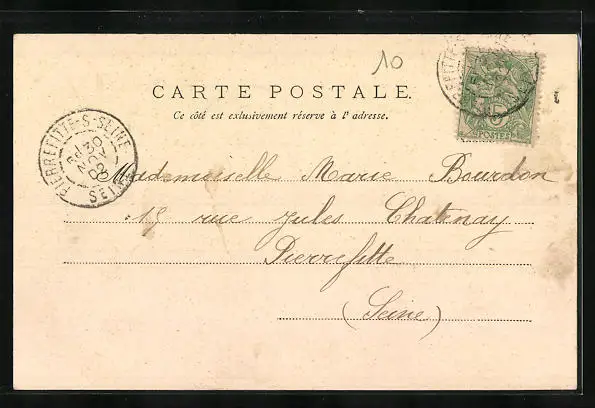 10
CARTE POSTALE
Ce côté est exclusivement réservé à l'adresse.
PIERREFITTE-S-SEINE
30
NOV
03
SEINE
POSTES
Mademoiselle Marie Bourdon
15 rue Jules Chatenay
Pierrefitte
(Seine)